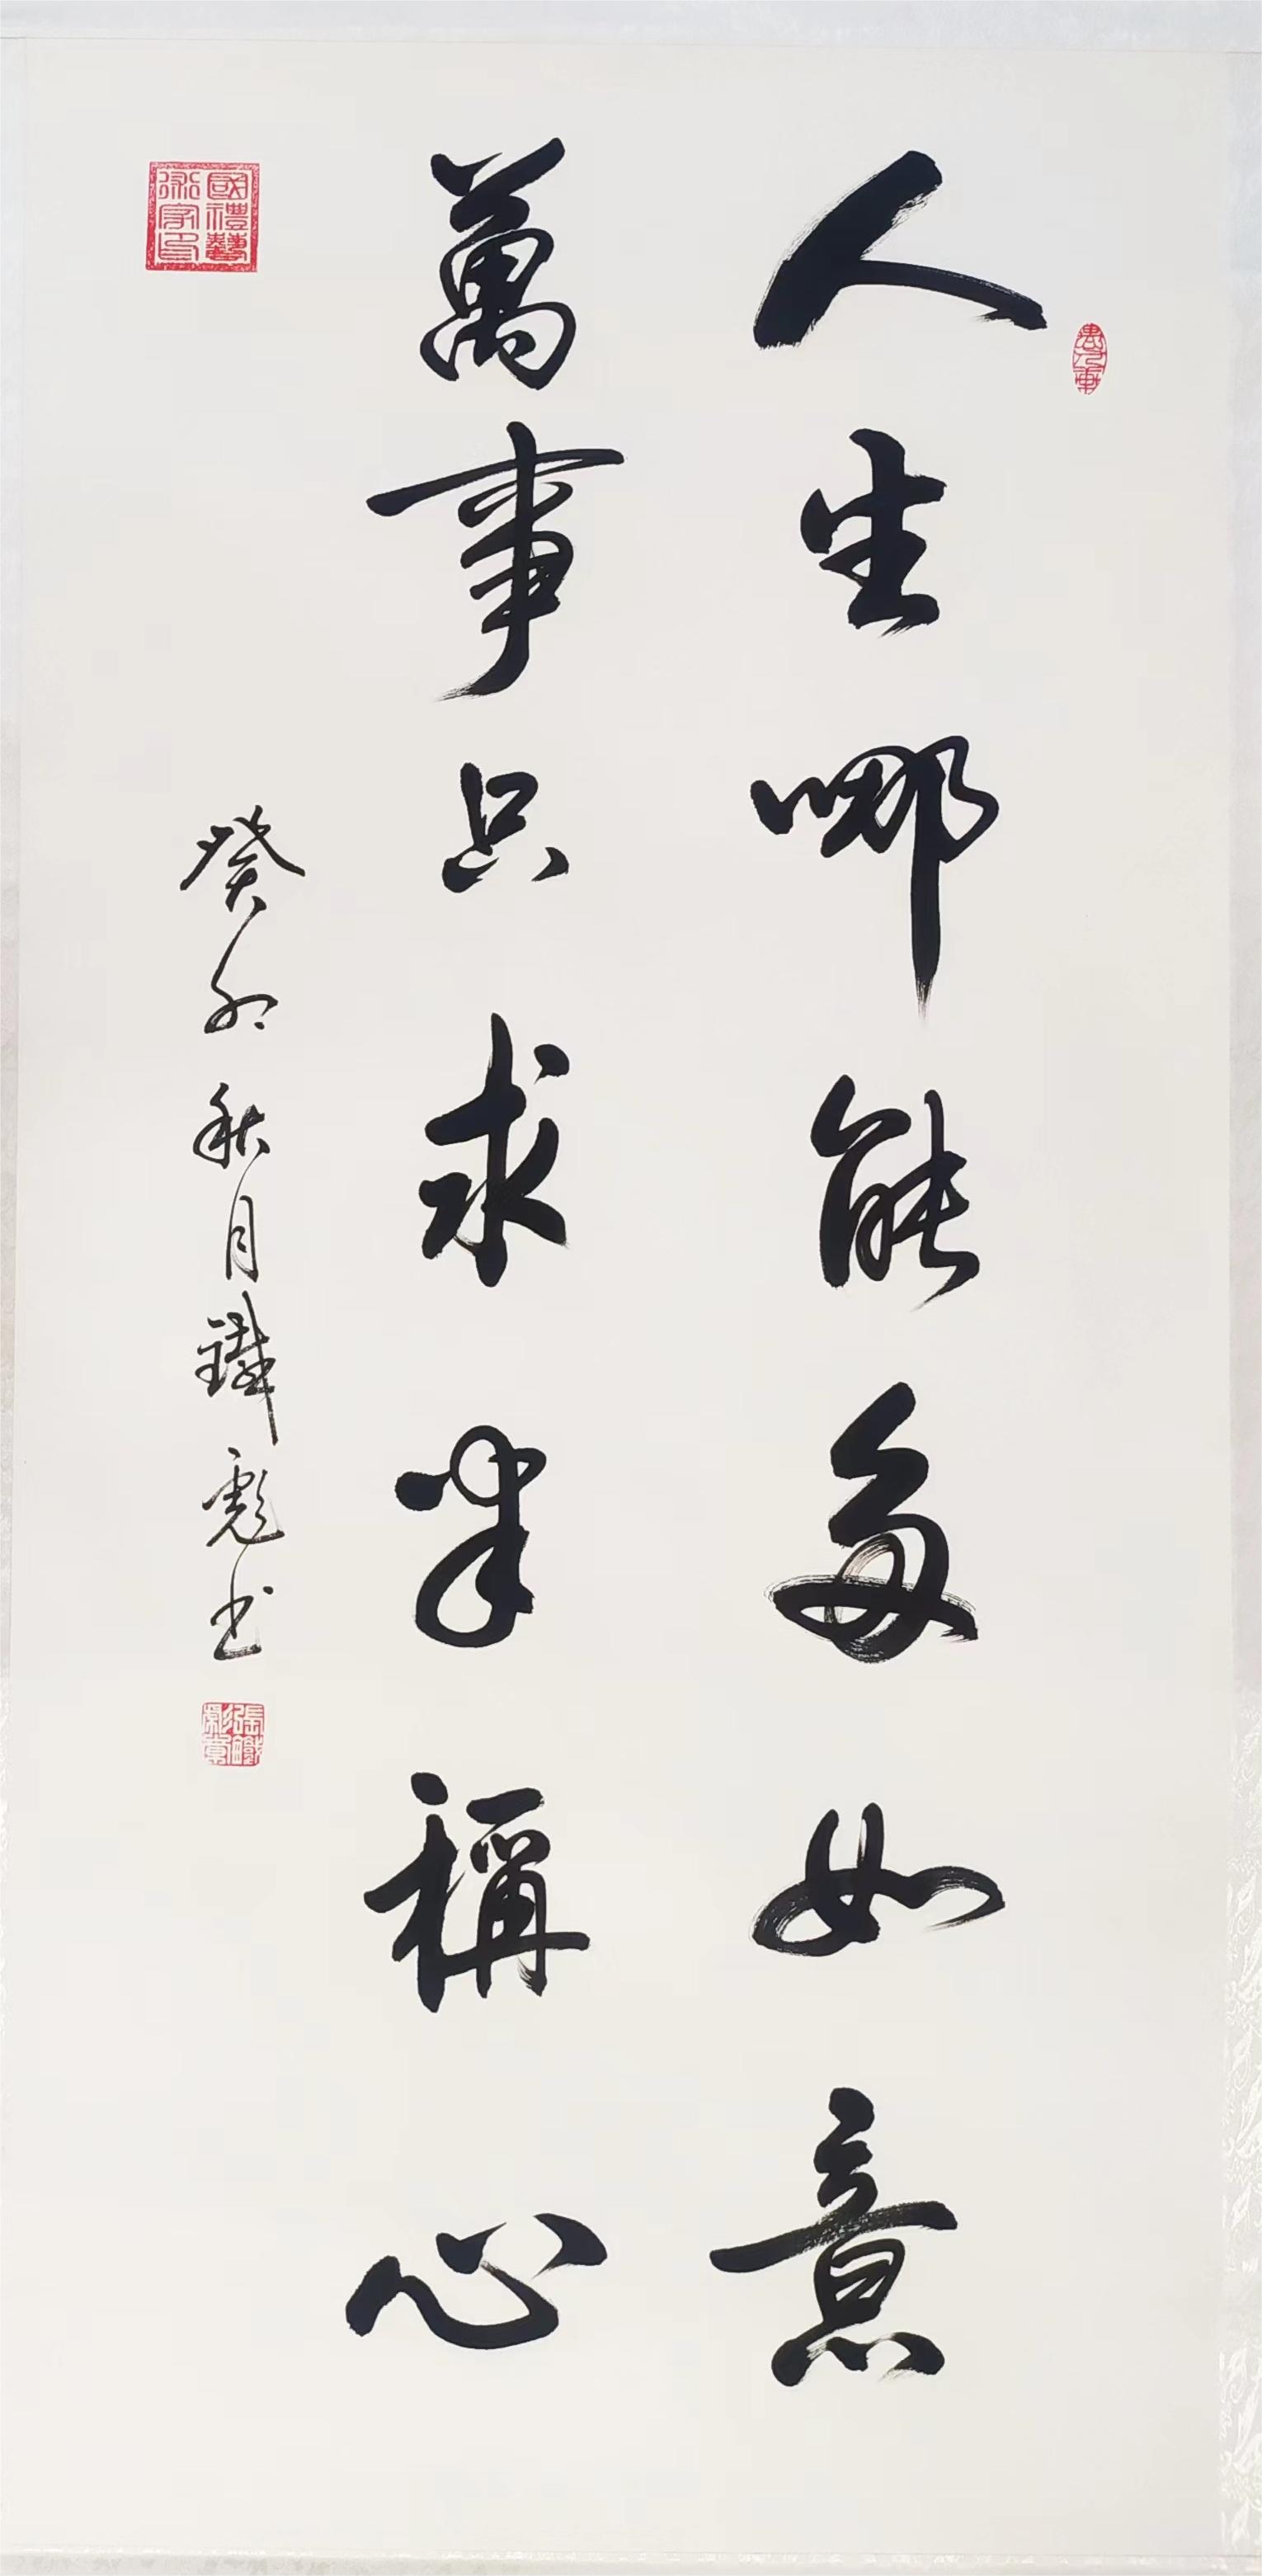 人生哪能多如意
萬事只求半稱心
癸卯秋月鐵彪书
國禮藝術家印
張鐵彪章